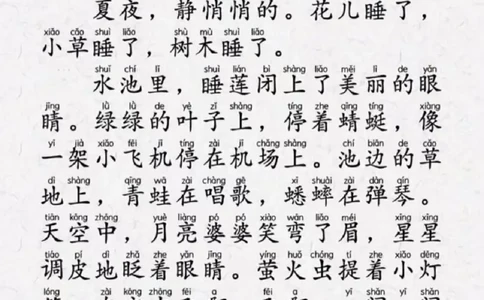 夏夜，静悄悄的。花儿睡了，
xiǎo cǎo shuì liǎo shù mù shuì liǎo
小草睡了，树木睡了。
shuǐ chí lǐ shuì lián bì shàng liǎo měi lì de yǎn
水池里，睡莲闭上了美丽的眼
jīng lǜ lǜ de yè zǐ shàng tíng zhe qīng tíng xiàng
睛。绿绿的叶子上，停着蜻蜓，像
yī jià xiǎo fēi jī tíng zài jī chǎng shàng chí biān de cǎo
一架小飞机停在机场上。池边的草
dì shàng qīng wā zài chàng gē xī shuài zài tán qín
地上，青蛙在唱歌，蟋蟀在弹琴。
tiān kōng zhōng yuè liàng pó pó xiào wān liǎo méi xīng xīng
天空中，月亮婆婆笑弯了眉，星星
tiáo pí dì zhǎ zhe yǎn jīng yíng huǒ chóng tí zhe xiǎo dēng
调皮地眨着眼睛。萤火虫提着小灯